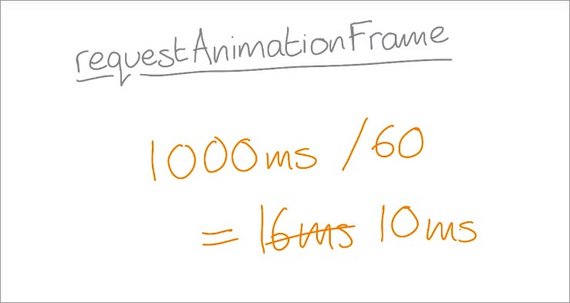 requestAnimationFrame
1000ms /60
= 16ms 10ms